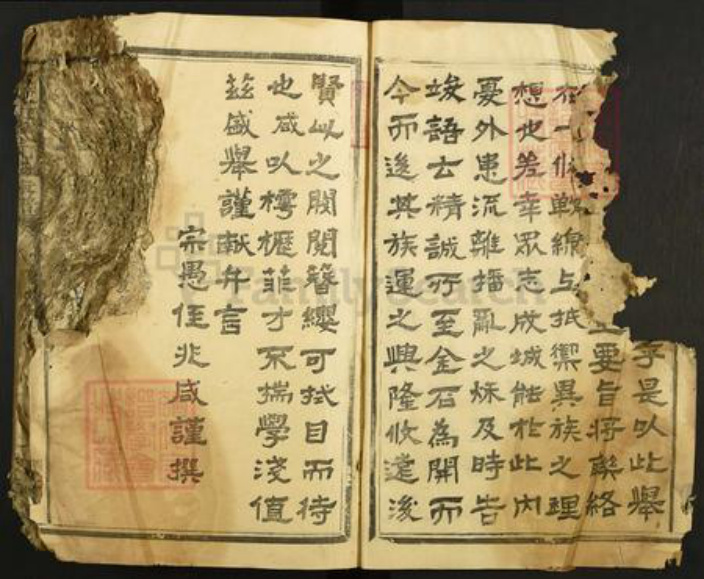 乎是以此舉
要旨將聯絡
在一條戰線上抵禦異族之理
想也差幸眾志成城能於此內
憂外患流離播亂之秋及時告
竣語云精誠所至金石為開而
今而後其族運之興隆攸遠後
賢此之閥閱簪纓可拭目而待
也咸以樗櫪菲才不揣學淺值
茲盛舉謹献弁言
宗愚侄兆咸謹撰
FamilySearch